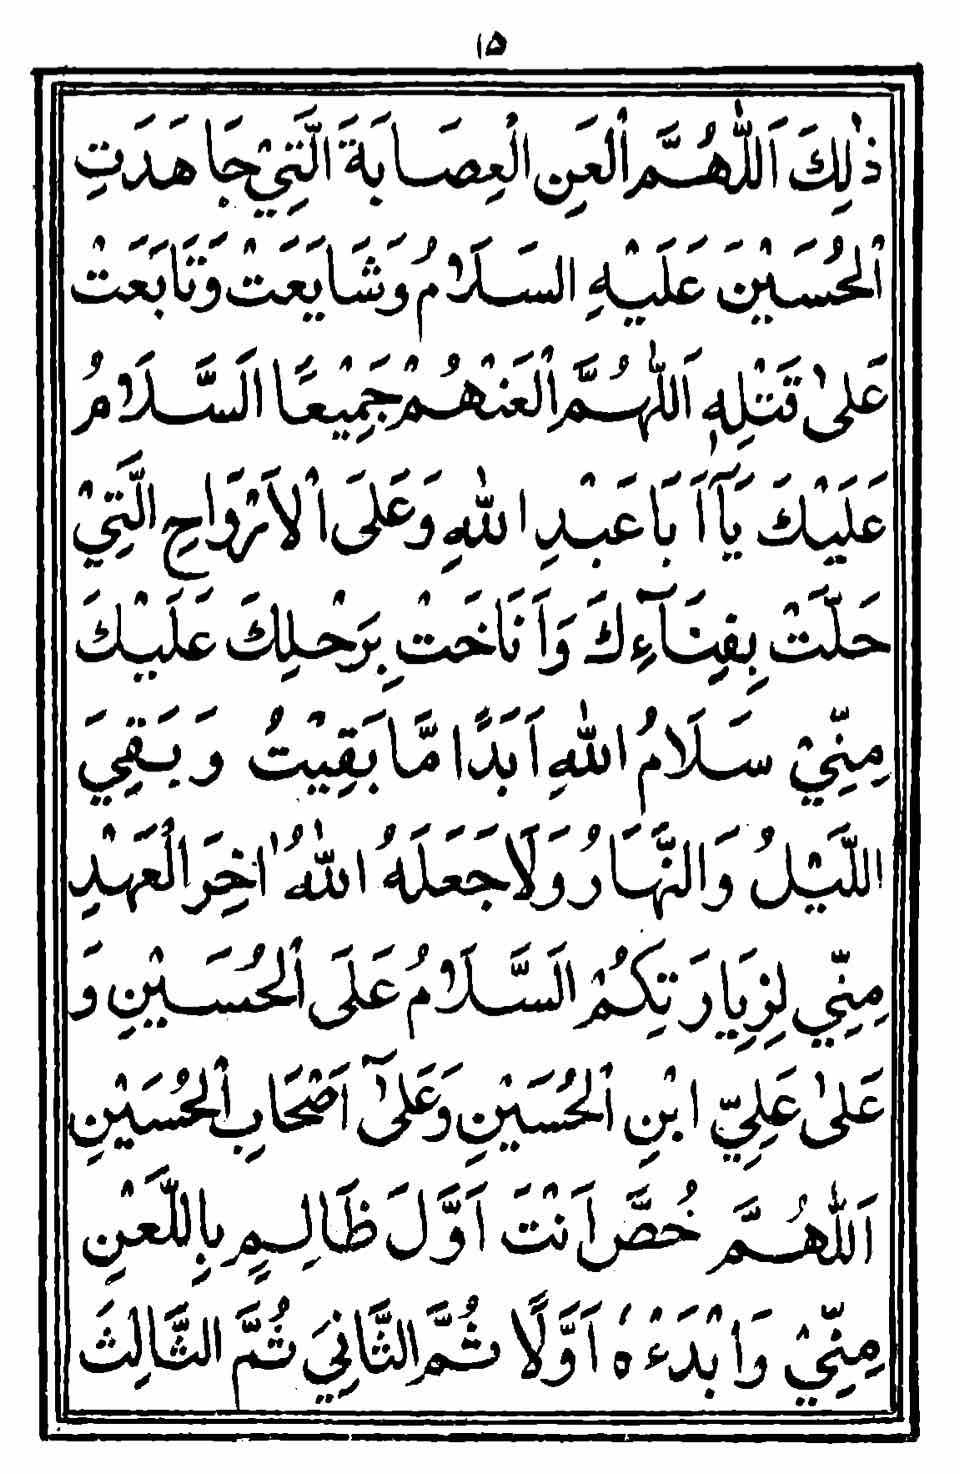 ١٥
ذٰلِكَ اَللّٰهُمَّ الْعَنِ الْعِصَابَةَ الَّتِيْ جَاهَدَتِ
الْحُسَيْنَ عَلَيْهِ السَلَامُ وَشَايَعَتْ وَتَابَعَتْ
عَلىٰ قَتْلِهٖ اَللّٰهُمَّ الْعَنْهُمْ جَمِيْعًا اَلسَّلَامُ
عَلَيْكَ يَآ اَبَا عَبْدِ اللّٰهِ وَعَلَى الْاَرْوَاحِ الَّتِيْ
حَلَّتْ بِفِنَآءِكَ وَاَنَاخَتْ بِرَحْلِكَ عَلَيْكَ
مِنِّيْ سَلَامُ اللّٰهِ اَبَدًا مَّا بَقِيْتُ وَبَقِيَ
اللَّيْلُ وَالنَّهَارُ وَلَا جَعَلَهُ اللّٰهُ اٰخِرَ الْعَهْدِ
مِنِّي لِزِيَارَتِكُمْ اَلسَّلَامُ عَلَى الْحُسَيْنِ وَ
عَلىٰ عَلِيِّ ابْنِ الْحُسَيْنِ وَعَلىٰٓ اَصْحَابِ الْحُسَيْنِ
اَللّٰهُمَّ خُصَّ اَنْتَ اَوَّلَ ظَالِمٍ بِاللَّعْنِ
مِنِّيْ وَابْدَءْهُ اَوَّلًا ثُمَّ الثَّانِيَ ثُمَّ الثَّالِثَ